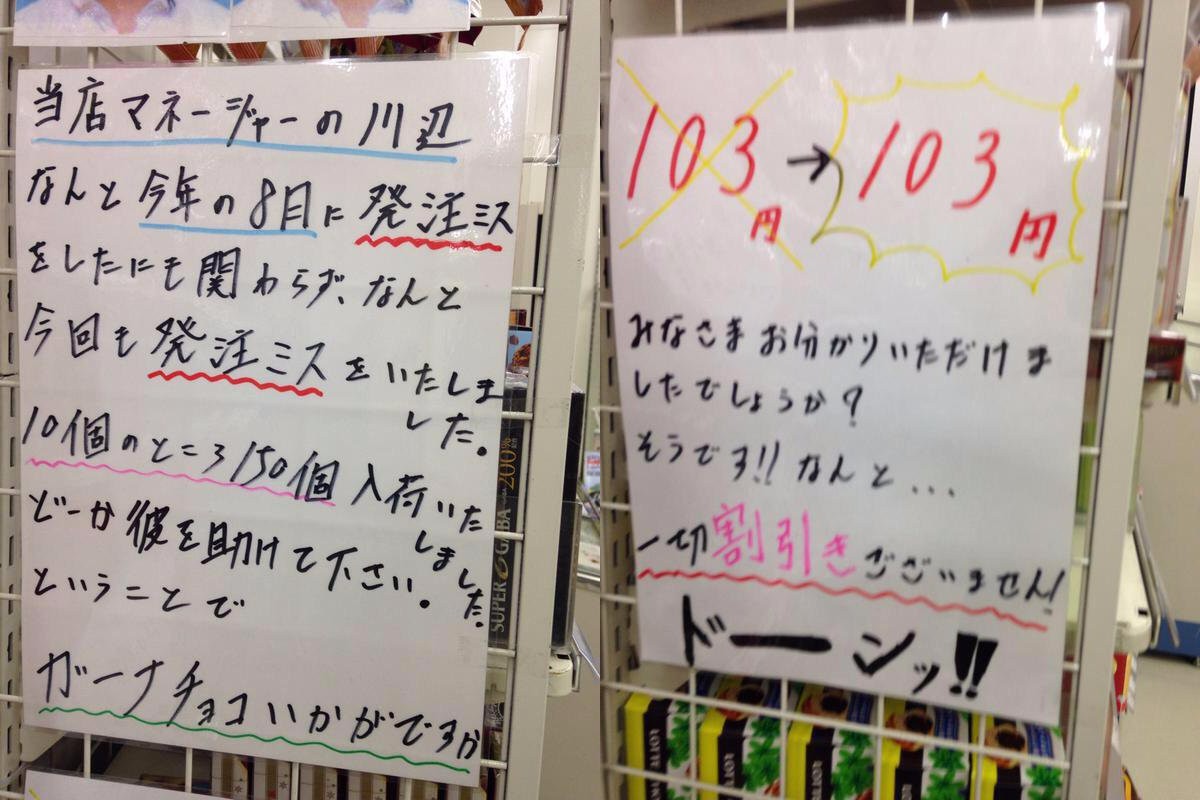 当店マネージャーの川辺
なんと今年の8月に発注ミス
をしたにも関わらず、なんと
今回も発注ミスをいたしま
した。
10個のところ150個入荷いた
しました。
どーか彼を助けて下さい。
ということで
ガーナチョコいかがですか
SUPER GABA 200%
103円→103円
みなさまお分かりいただけま
したでしょうか?
そうです!!なんと...
一切割引きございません!
ドーンッ!!
LOTTE